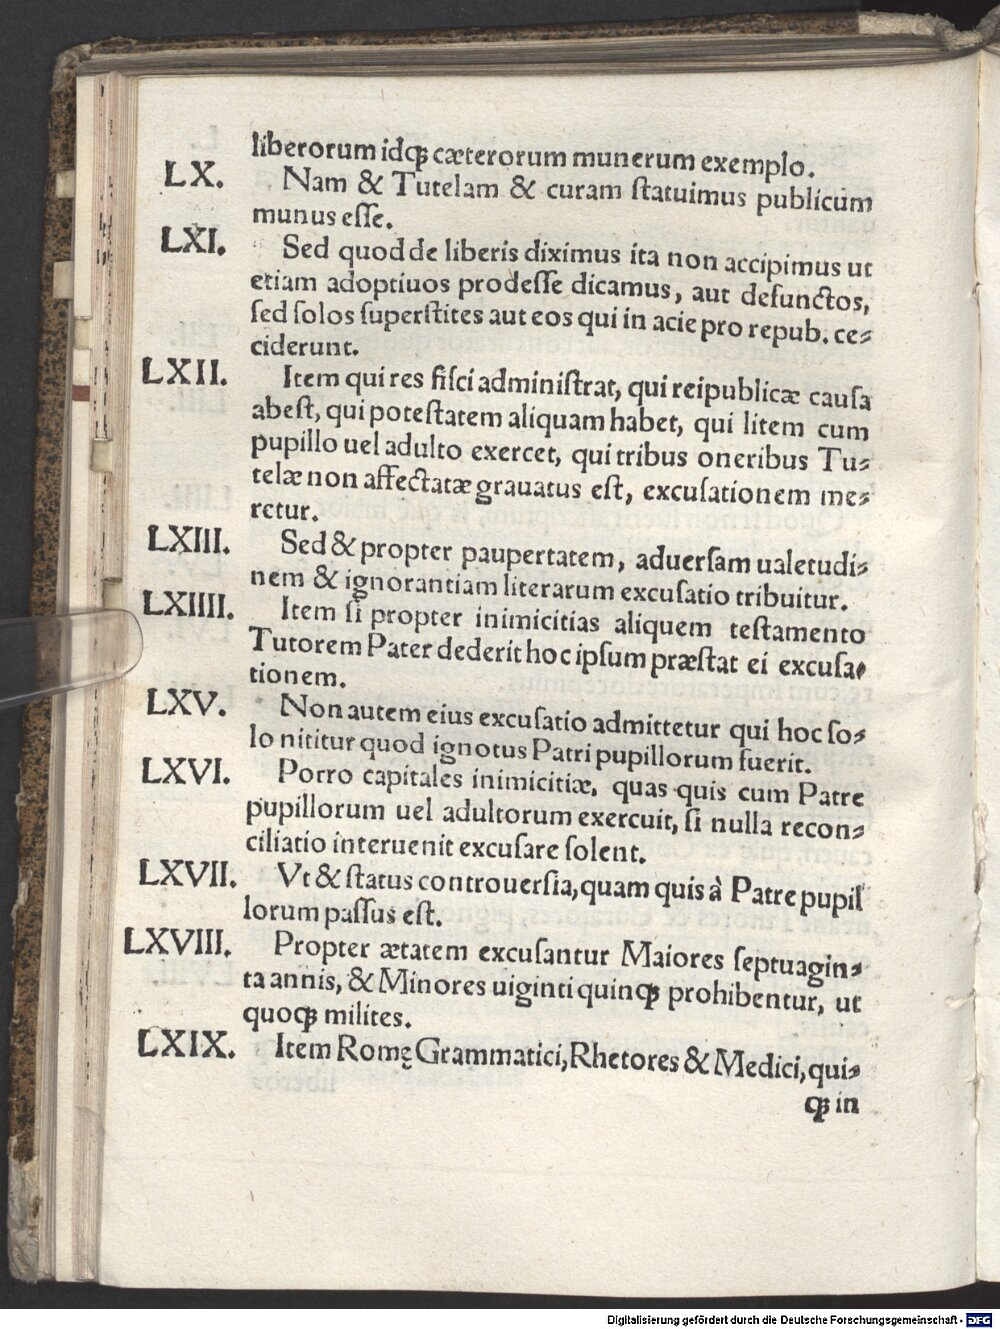 liberorum idqꝫ cæterorum munerum exemplo.
LX. Nam & Tutelam & curam ſtatuimus publicum
munus eſſe.
LXI. Sed quod de liberis diximus ita non accipimus ut
etiam adoptiuos prodeſſe dicamus, aut defunctos,
ſed ſolos ſuperſtites aut eos qui in acie pro repub. ce⸗
ciderunt.
LXII. Item qui res fiſci adminiſtrat, qui reipublicæ cauſa
abeſt, qui poteſtatem aliquam habet, qui litem cum
pupillo uel adulto exercet, qui tribus oneribus Tu⸗
telæ non affectatæ grauatus eſt, excuſationem me⸗
retur.
LXIII. Sed & propter paupertatem, aduerſam ualetudi⸗
nem & ignorantiam literarum excuſatio tribuitur.
LXIIII. Item ſi propter inimicitias aliquem teſtamento
Tutorem Pater dederit hoc ipſum præſtat ei excuſa⸗
tionem.
LXV. Non autem eius excuſatio admittetur qui hoc ſo⸗
lo nititur quod ignotus Patri pupillorum fuerit.
LXVI. Porro capitales inimicitiæ, quas quis cum Patre
pupillorum uel adultorum exercuit, ſi nulla recon⸗
ciliatio interuenit excuſare ſolent.
LXVII. Vt & ſtatus controuerſia, quam quis à Patre pupil
lorum paſſus eſt.
LXVIII. Propter ætatem excuſantur Maiores ſeptuagin⸗
ta annis, & Minores uiginti quinqꝫ prohibentur, ut
quoqꝫ milites.
LXIX. Item Romę Grammatici, Rhetores & Medici, qui⸗
qꝫ in
Digitalisierung gefördert durch die Deutsche Forschungsgemeinschaft - DFG